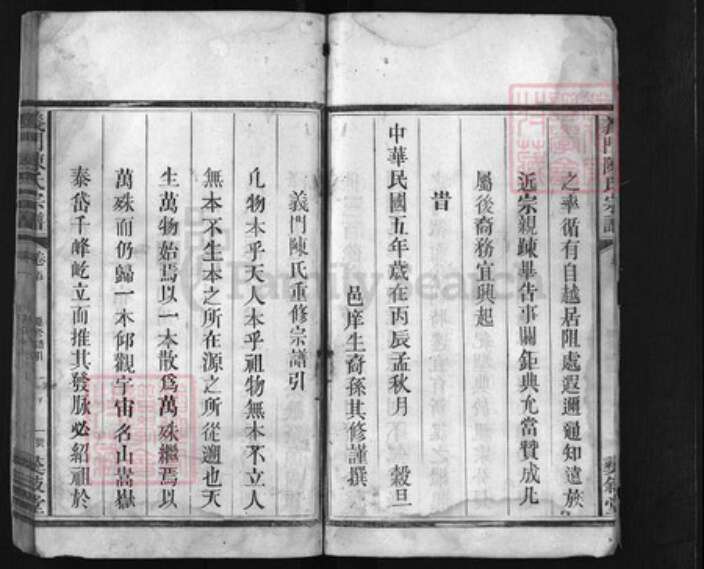 之率循有自越居阻處遐邇通知遠族
近宗親疎畢告事關鉅典允當贊成凡
屬後裔務宜興起
昔
中華民國五年歲在丙辰孟秋月 穀旦
邑庠生裔孫其修謹撰
義門陳氏重修宗譜引
凡物本乎天人本乎祖物無本不立人
無本不生本之所在源之所從遡也天
生萬物始焉以一本散爲萬殊繼焉以
萬殊而仍歸一本仰觀宇宙名山嵩嶽
泰岱千峰屹立而推其發脉必紹祖於
義門陳氏宗譜
FamilySearch